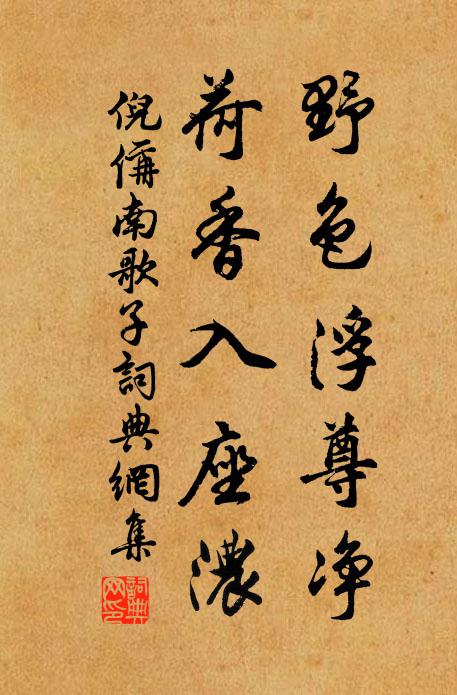 野色浮尊净
荷香入座濃
倪偁南歌子詞典網集
詞典网印